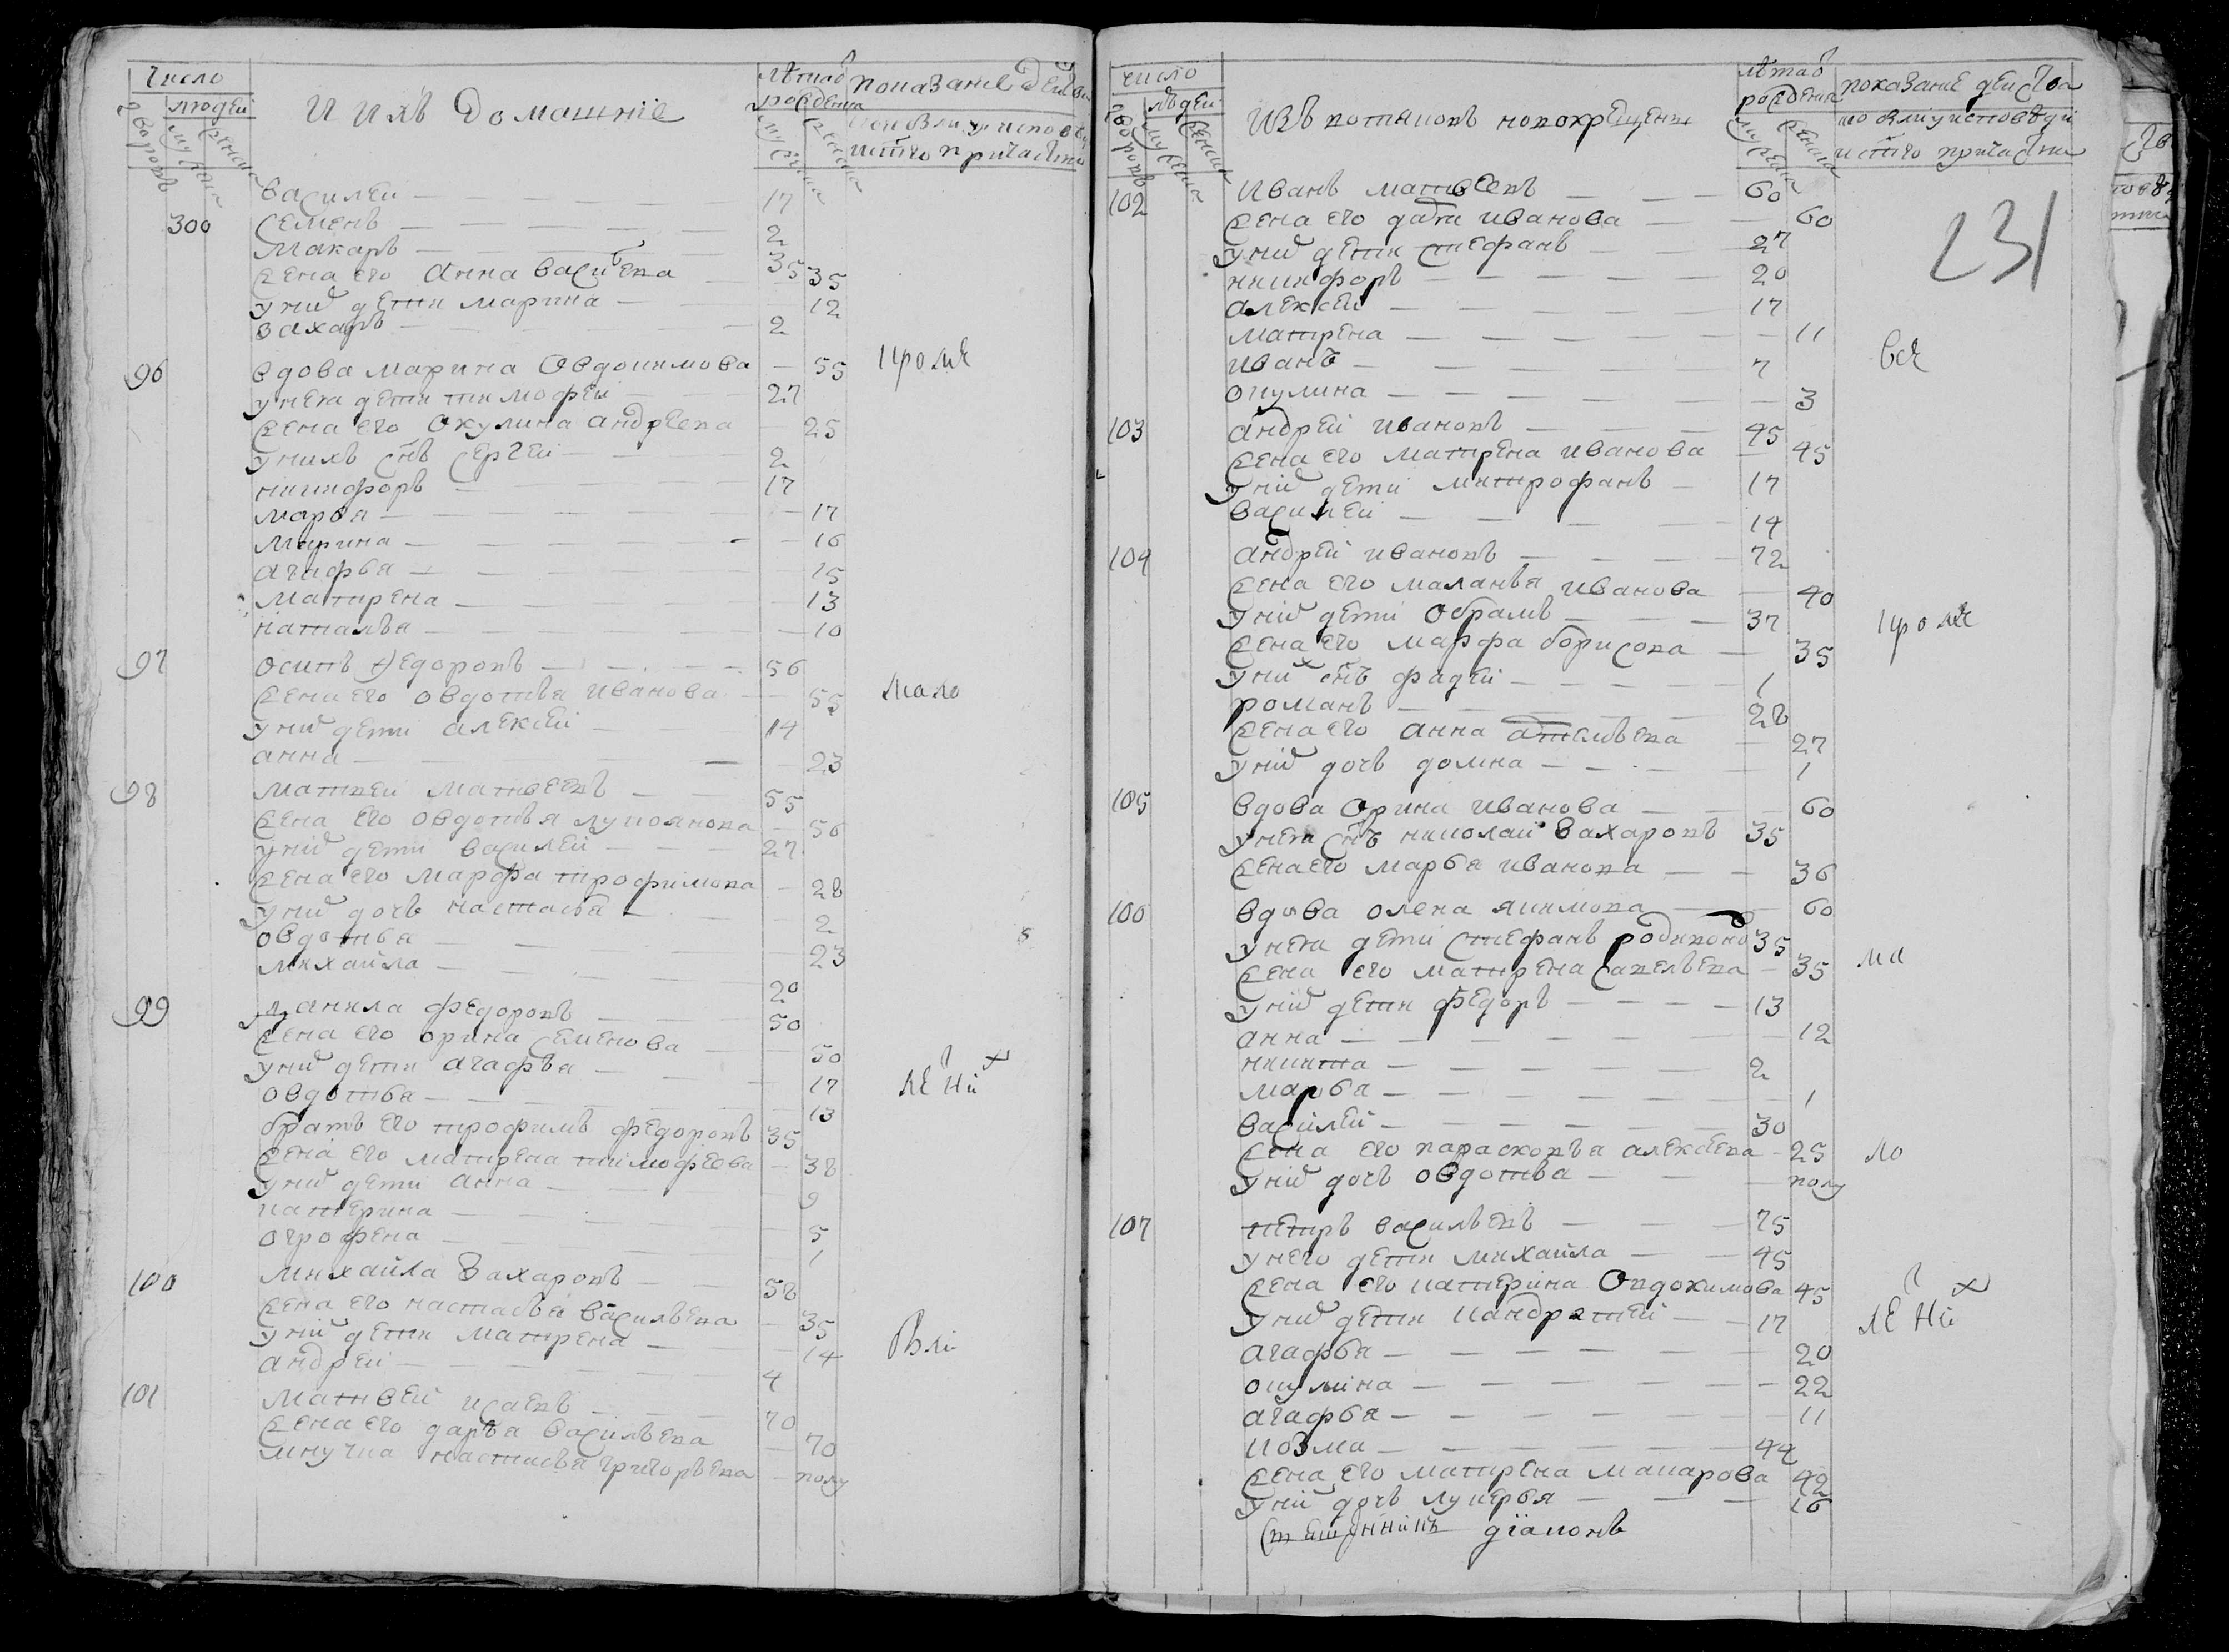 Число
людей
дворовъ
мужска
женска
И ихъ домашніе
лѣтаѿ рожденія
мужска
женска
показание деиства
кои были у исповѣди
истаго причастия
Василеи 17
300 Семенъ 2
Макаръ 35
жена его Анна Васильева 35
у них дети Марина 12
Захаръ 2
96 вдова Марина Овдокимова 55
у нея дети Тимофеи 27
жена его Окулина Андреева 25
у нихъ снъ Сергеи 2
Никифоръ 17
Марѳа 17
Марина 16
Агафья 15
Матрена 13
Наталья 10
97 Осипъ Федоровъ 56
жена его Овдотья Иванова 55
у них дети Алексеи 14
Анна 23
98 Матвеи Матвеевъ 55
жена его Овдотья Лукоянова 56
у них дети Василеи 27
жена его Марфа Трофимова 28
у них дочь Настасья 2
Овдотья 23
Михаила 20
99 Данила Федоровъ 50
жена его Орина Семенова 50
у них дети Агафья 17
Овдотья 13
братъ его Трофимъ Федоровъ 35
жена его Матрена Тимофеева 38
у них дети Анна 9
Катерина 5
Огрофена 1
100 Михаила Захаровъ 58
жена его Настасья Васильева 35
у них дети Матрена 14
Андреи 4
101 Матвеи Исаевъ 70
жена его Дарья Васильева 70
внучка Настасья Григорьева полу
кроме
мало
лених
были
число
людеи
дворовъ
мужска
женска
Изъ потаковъ новокрещены
лѣтаѿ рождения
мужска
женска
показание деиства
кто были у исповѣди
истаго причастия
231
102 Иванъ Матвеевъ 60
жена его Дарья Иванова 60
у них дети Стефанъ 27
Никифоръ 20
Алексеи 17
Матрена 11
Иванъ 7
Окулина 3
103 Андреи Ивановъ 45
жена его Матрена Иванова 45
у них дети Митрофанъ 17
Василеи 14
104 Андреи Ивановъ 72
жена его Маланья Иванова 40
у них дети Обрамъ 37
жена его Марфа Борисова 35
у них снъ Фадеи 1
Романъ 28
жена его Анна Савельева 27
у них дочь Домна 1
105 вдова Орина Иванова 60
у нея снъ Николаи Захаровъ 35
жена его Марѳа Иванова 36
106 вдова Олена Якимова 60
у нея дети Стефанъ Родионов 35
жена его Матрена Савельева 35
у них дети Федоръ 13
Анна 12
Никита 2
Марѳа 1
Василеи 30
жена его Парасковья Алексеева 25
у них дочь Овдотья полу
107 Петръ Васильевъ 75
у него дети Михаила 45
жена его Катерина Овдокимова 45
у них дети Кандратеи 17
Агафья 20
Окулина 22
Агафья 11
Козма 44
жена его Матрена Макарова 42
у них дочь Лукерья 16
все
кроме
ма
ло
лених
дїаконъ